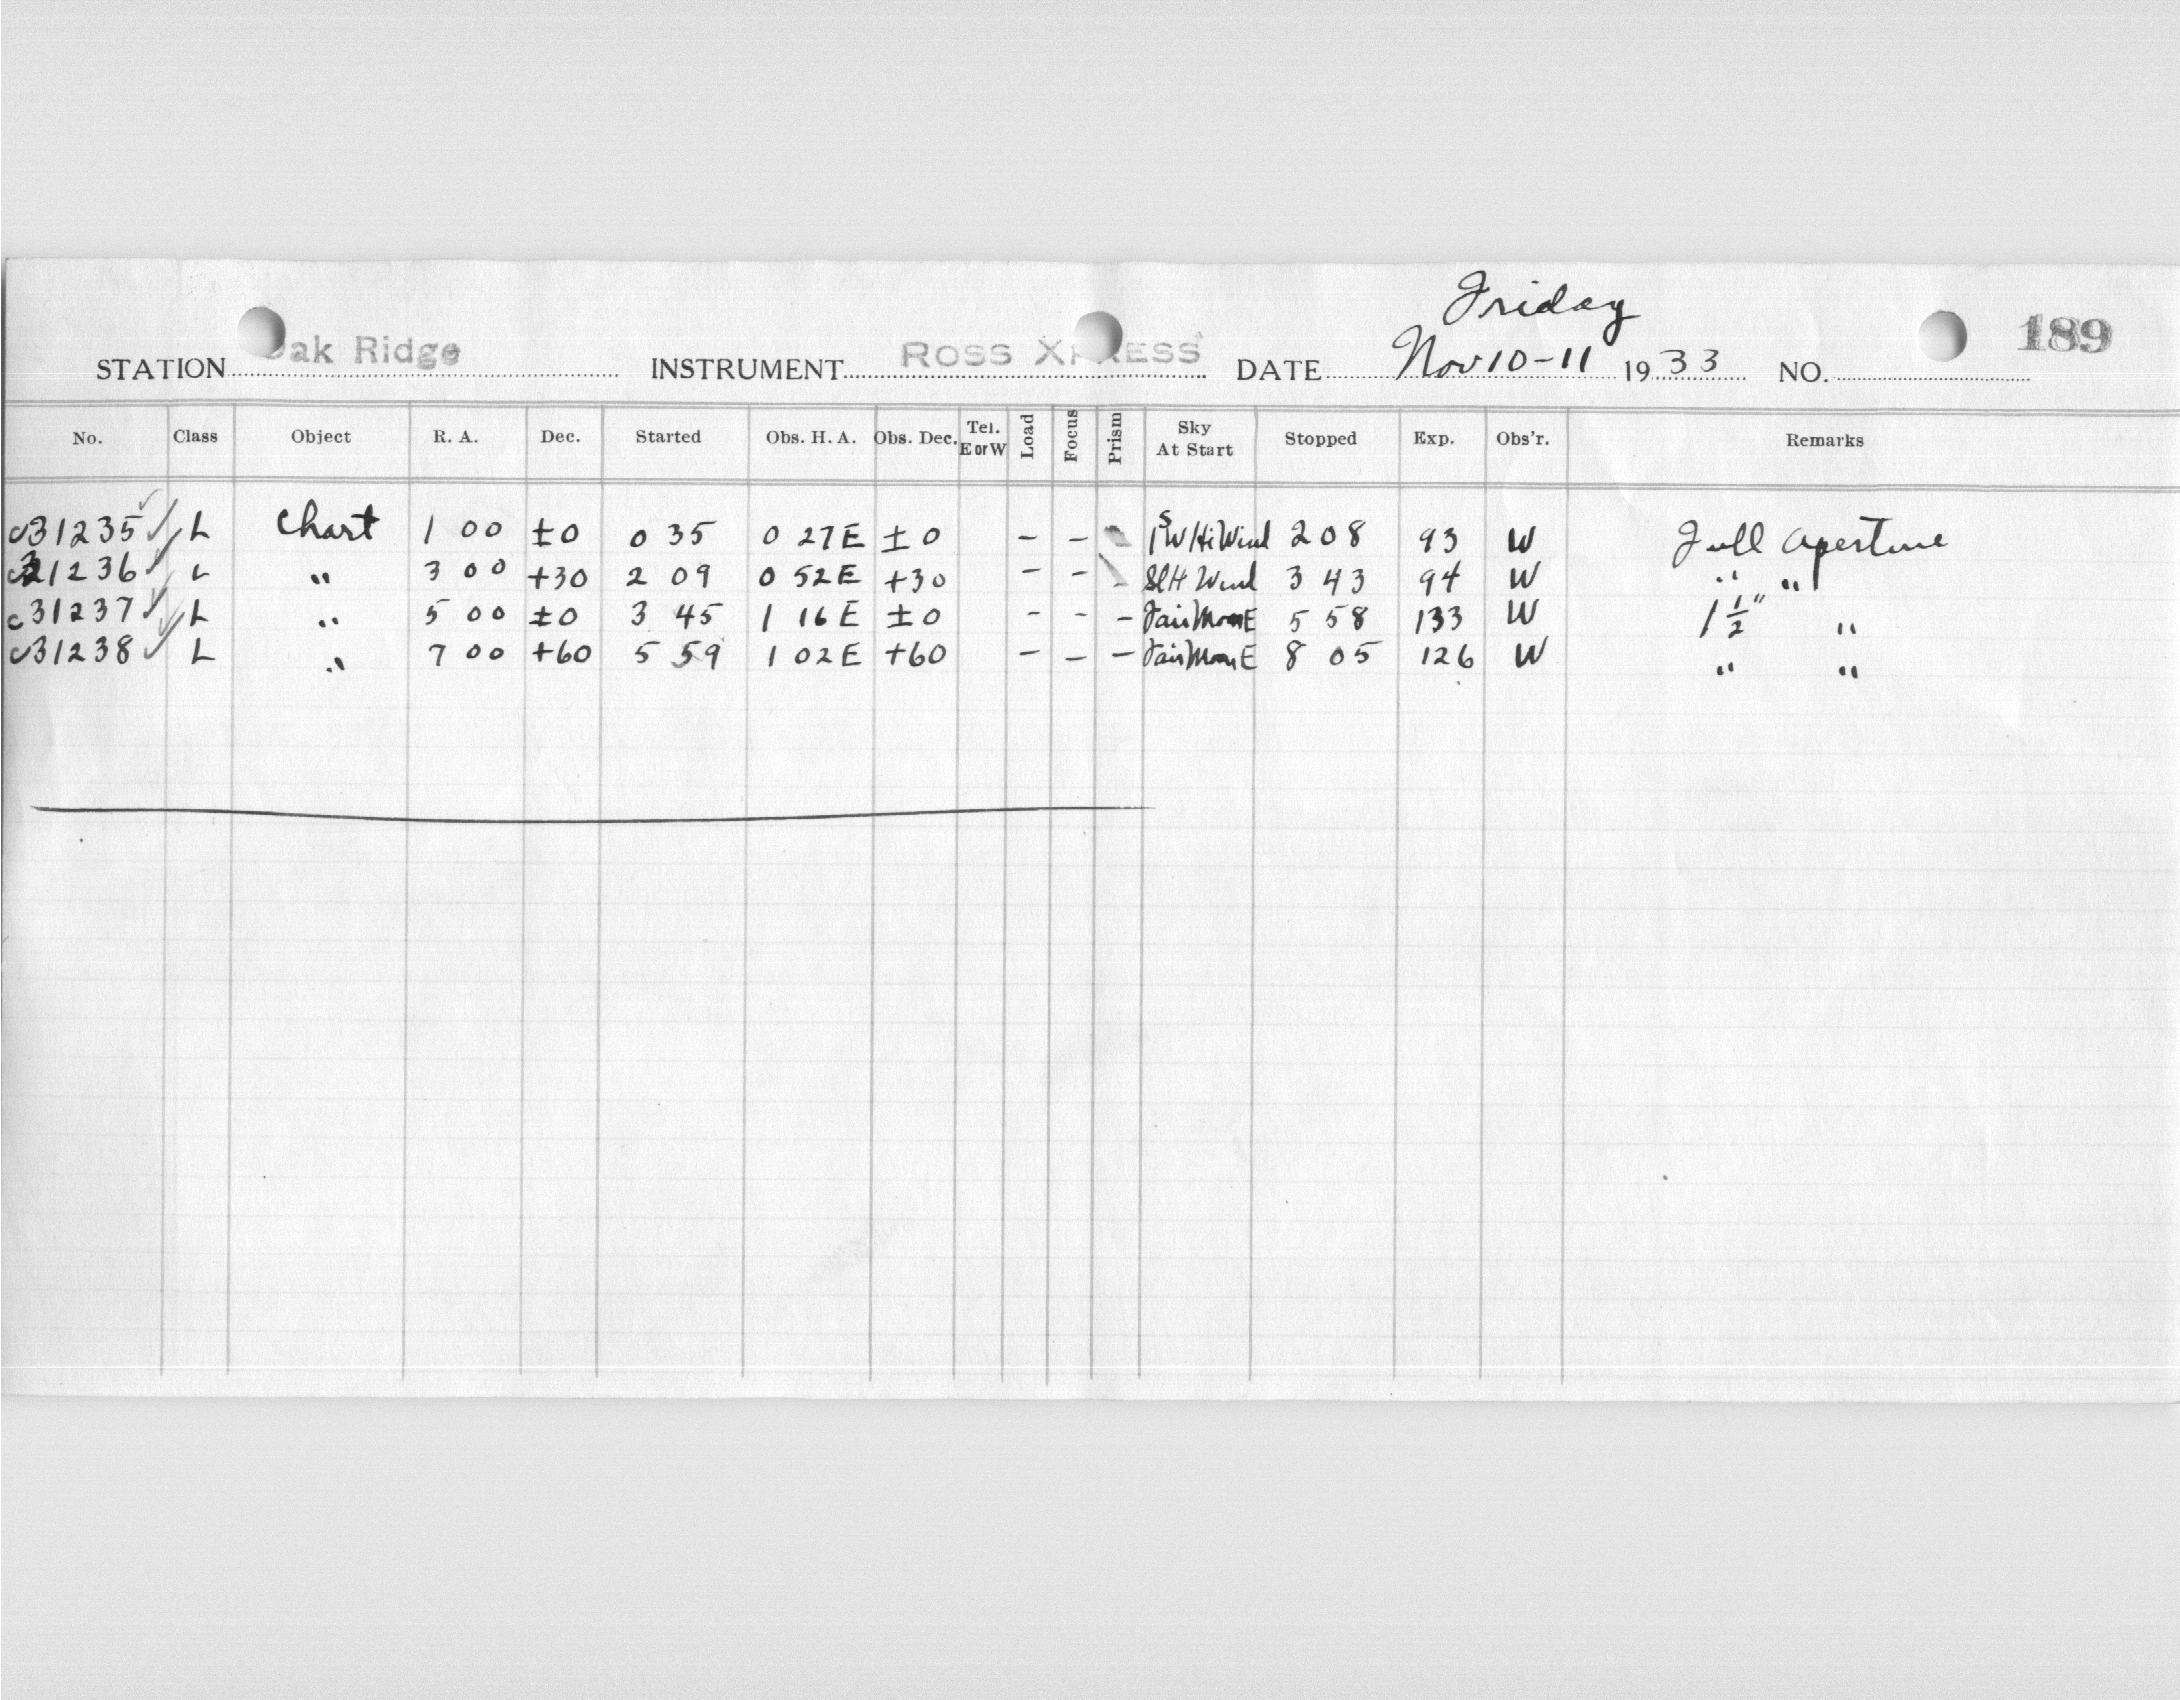 Friday
STATION Oak Ridge INSTRUMENT ROSS XPRESS DATE Nov 10-11 1933 NO. 189
No. Class Object R. A. Dec. Started Obs. H. A. Obs. Dec. Tel. E or W Load Focus Prism Sky At Start Stopped Exp. Obs'r. Remarks
c31235 L Chart 1 00 ±0 0 35 0 27E ±0 - - Hi Wind 2 08 93 W Full Aperture
c31236 L " 3 00 +30 2 09 0 52E +30 - - - Sl H Wind 3 43 94 W " "
c31237 L " 5 00 ±0 3 45 1 16E ±0 - - - Fair Moon E 5 58 133 W 1 1/2" "
c31238 L " 7 00 +60 5 59 1 02E +60 - - - Fair Moon E 8 05 126 W " "